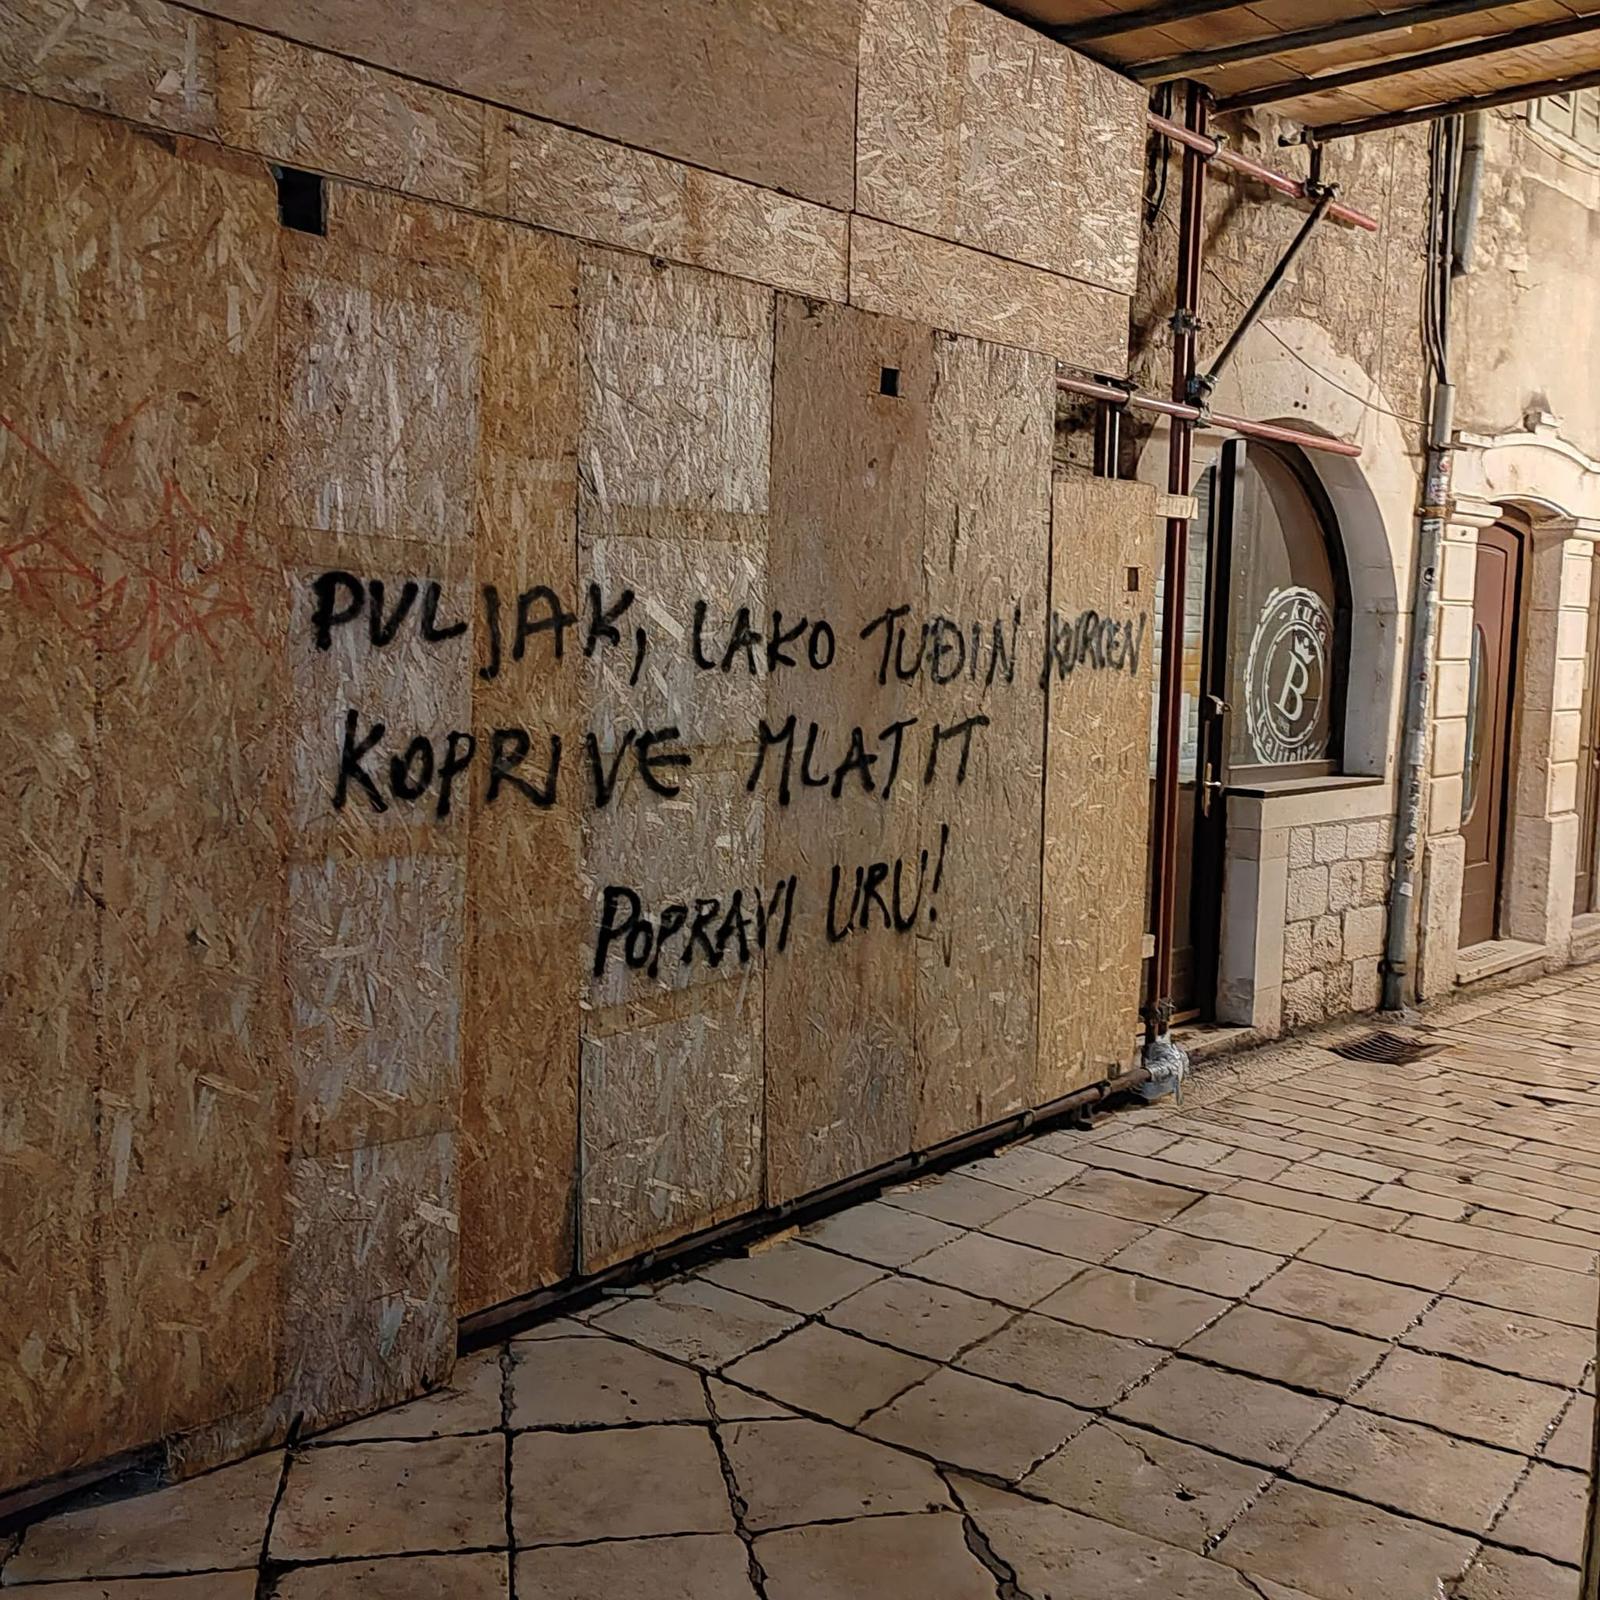 PULJAK, LAKO TUĐIN KURCEN
KOPRIVE MLATIT
POPRAVI URU!
kuća
B